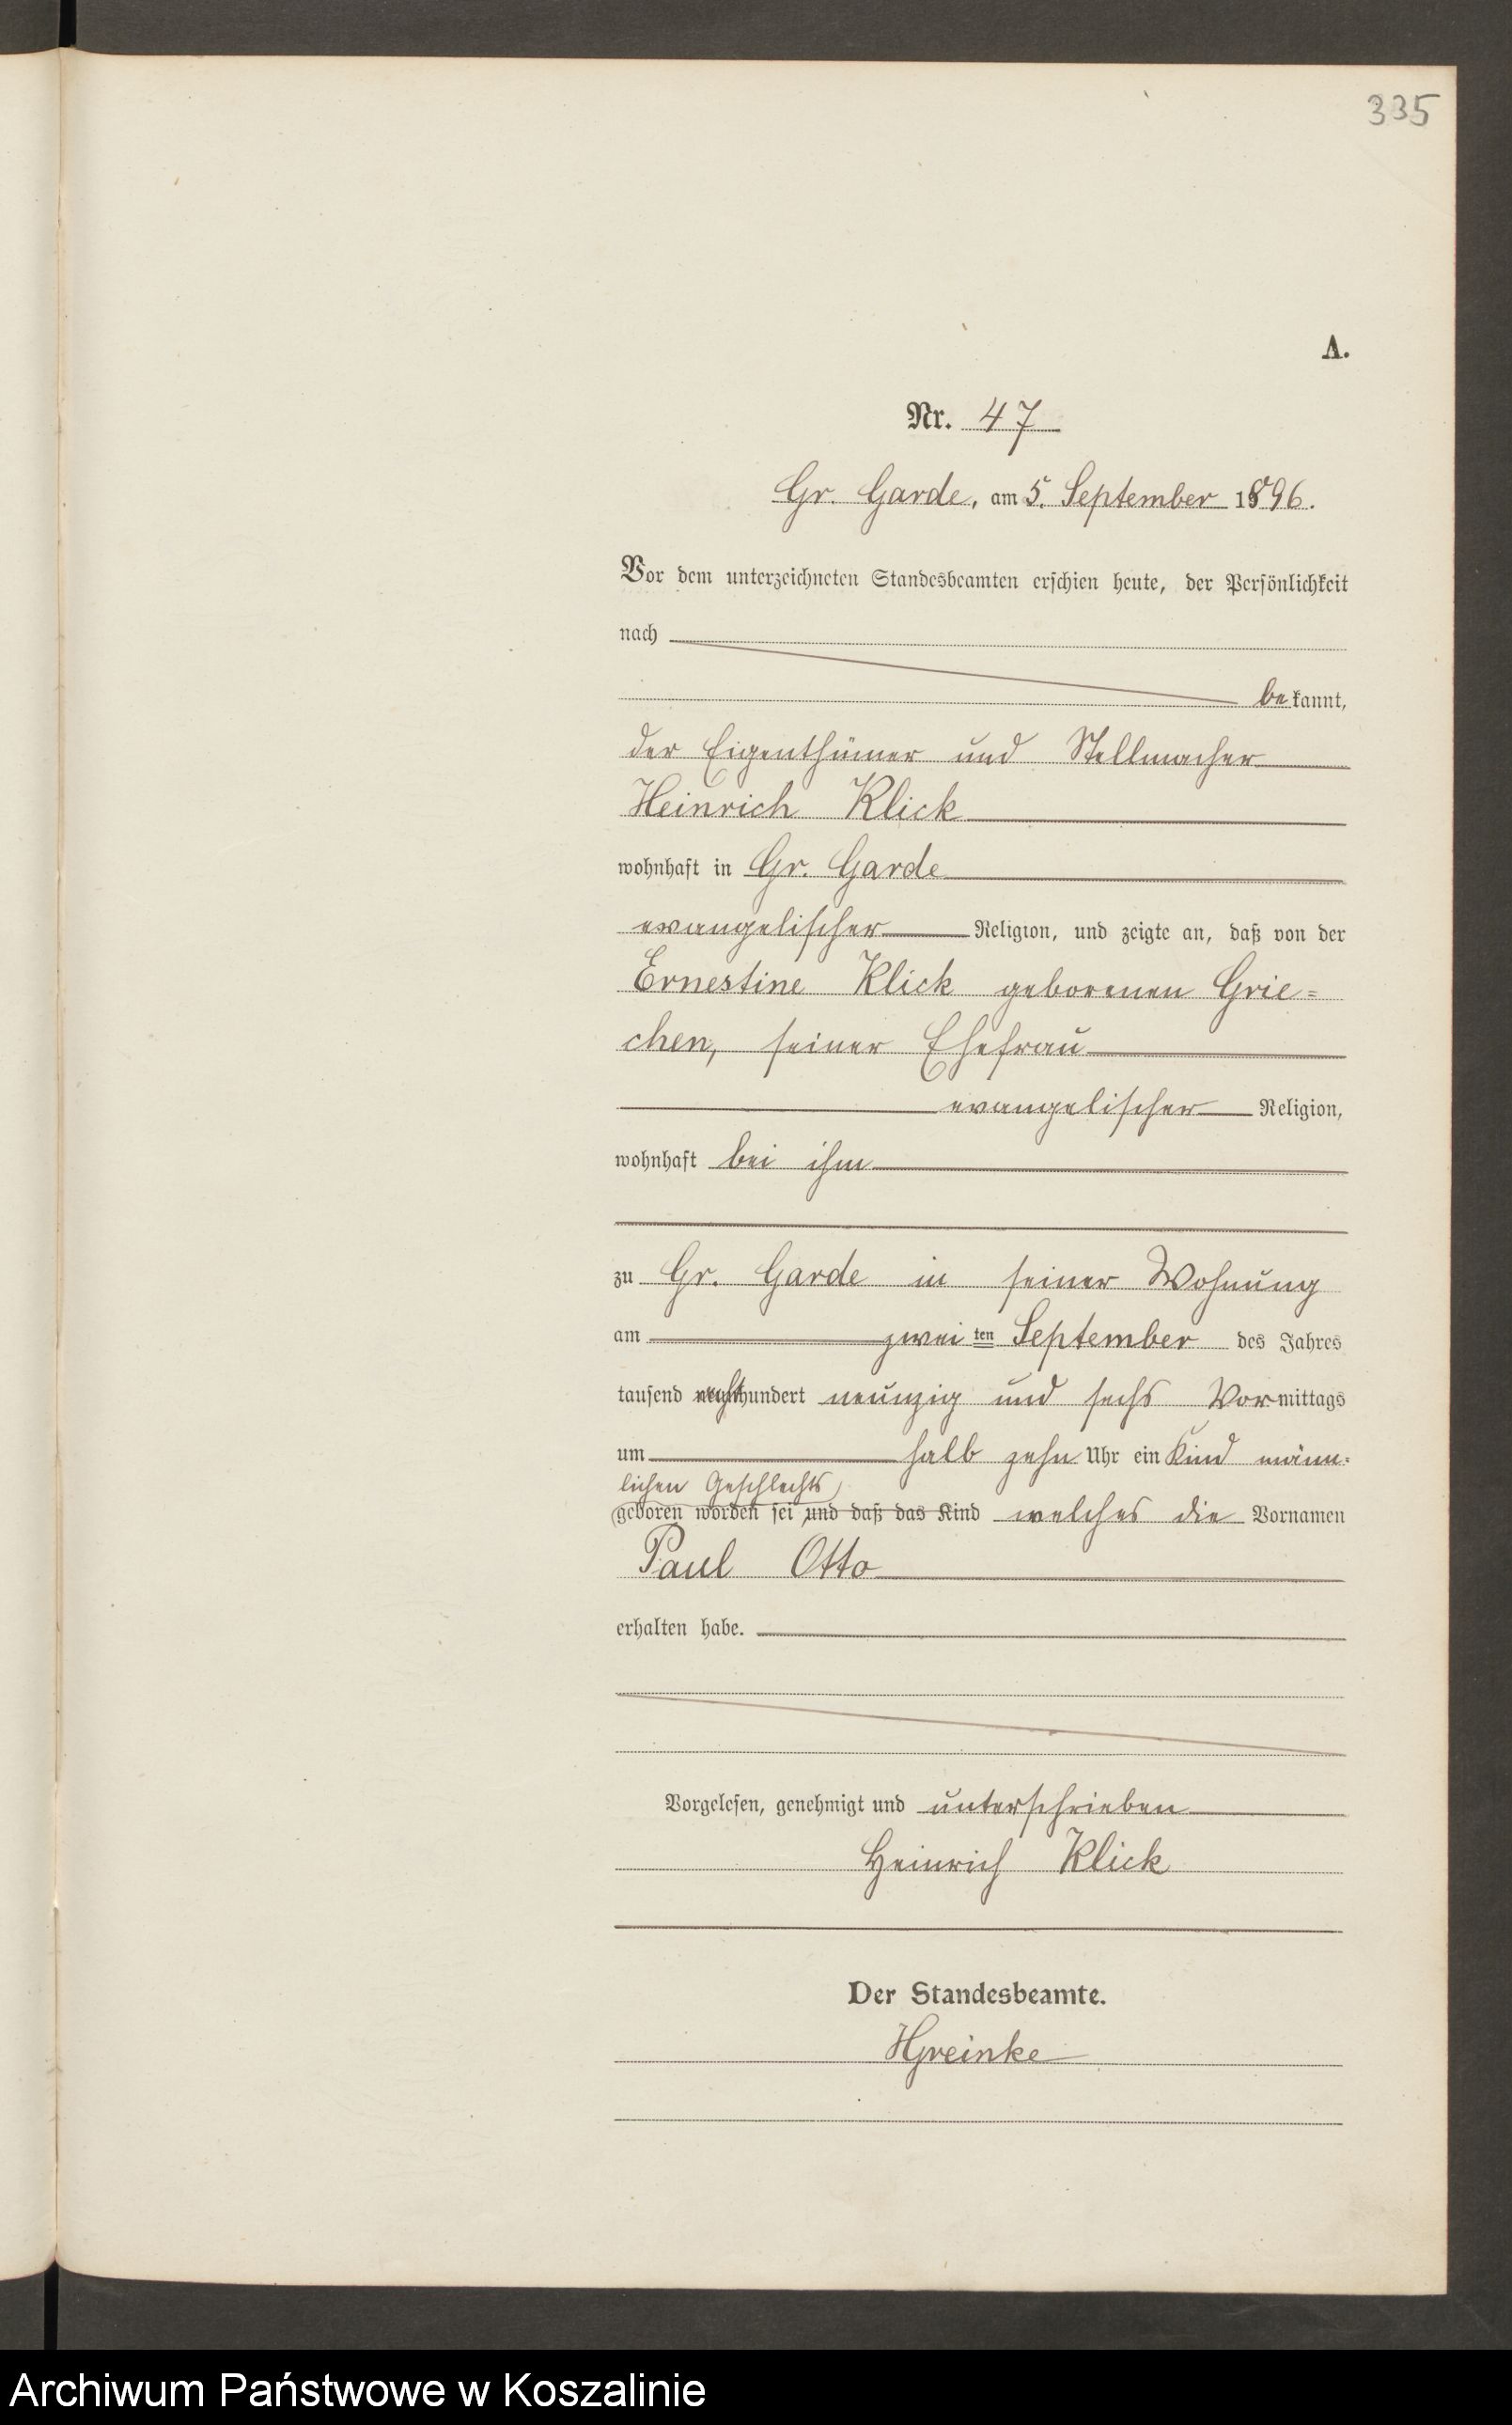 335
A.
Nr. 47
Gr. Garde, am 5. September 1896.
Vor dem unterzeichneten Standesbeamten erschien heute, der Persönlichkeit
nach
bekannt,
der Eigenthümer und Stellmacher
Heinrich Klick
wohnhaft in Gr. Garde
evangelischer Religion, und zeigte an, daß von der
Ernestine Klick geborenen Grie=
chen, seiner Ehefrau
evangelischer Religion,
wohnhaft bei ihm
zu Gr. Garde in seiner Wohnung
am zwei ten September des Jahres
tausend achthundert neunzig und sechs Vormittags
um halb zehn Uhr ein Kind männ=
lichen Geschlechts
geboren worden sei und daß das Kind welches die Vornamen
Paul Otto
erhalten habe.
Vorgelesen, genehmigt und unterschrieben
Heinrich Klick
Der Standesbeamte.
HGreinke
Archiwum Państwowe w Koszalinie